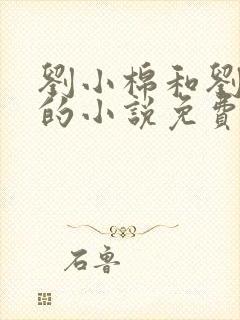 劉小棉和劉
的小說免費
石魯